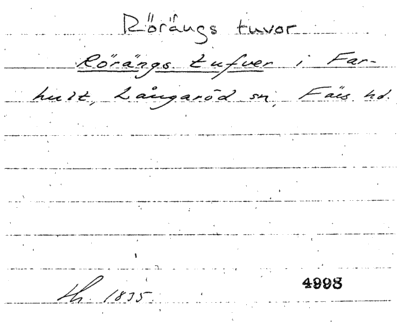 Rörängs tuvor
Rörängs tufver i Far-
hult, Långaröd sn, Färs hd.
Lh. 1835.
4998